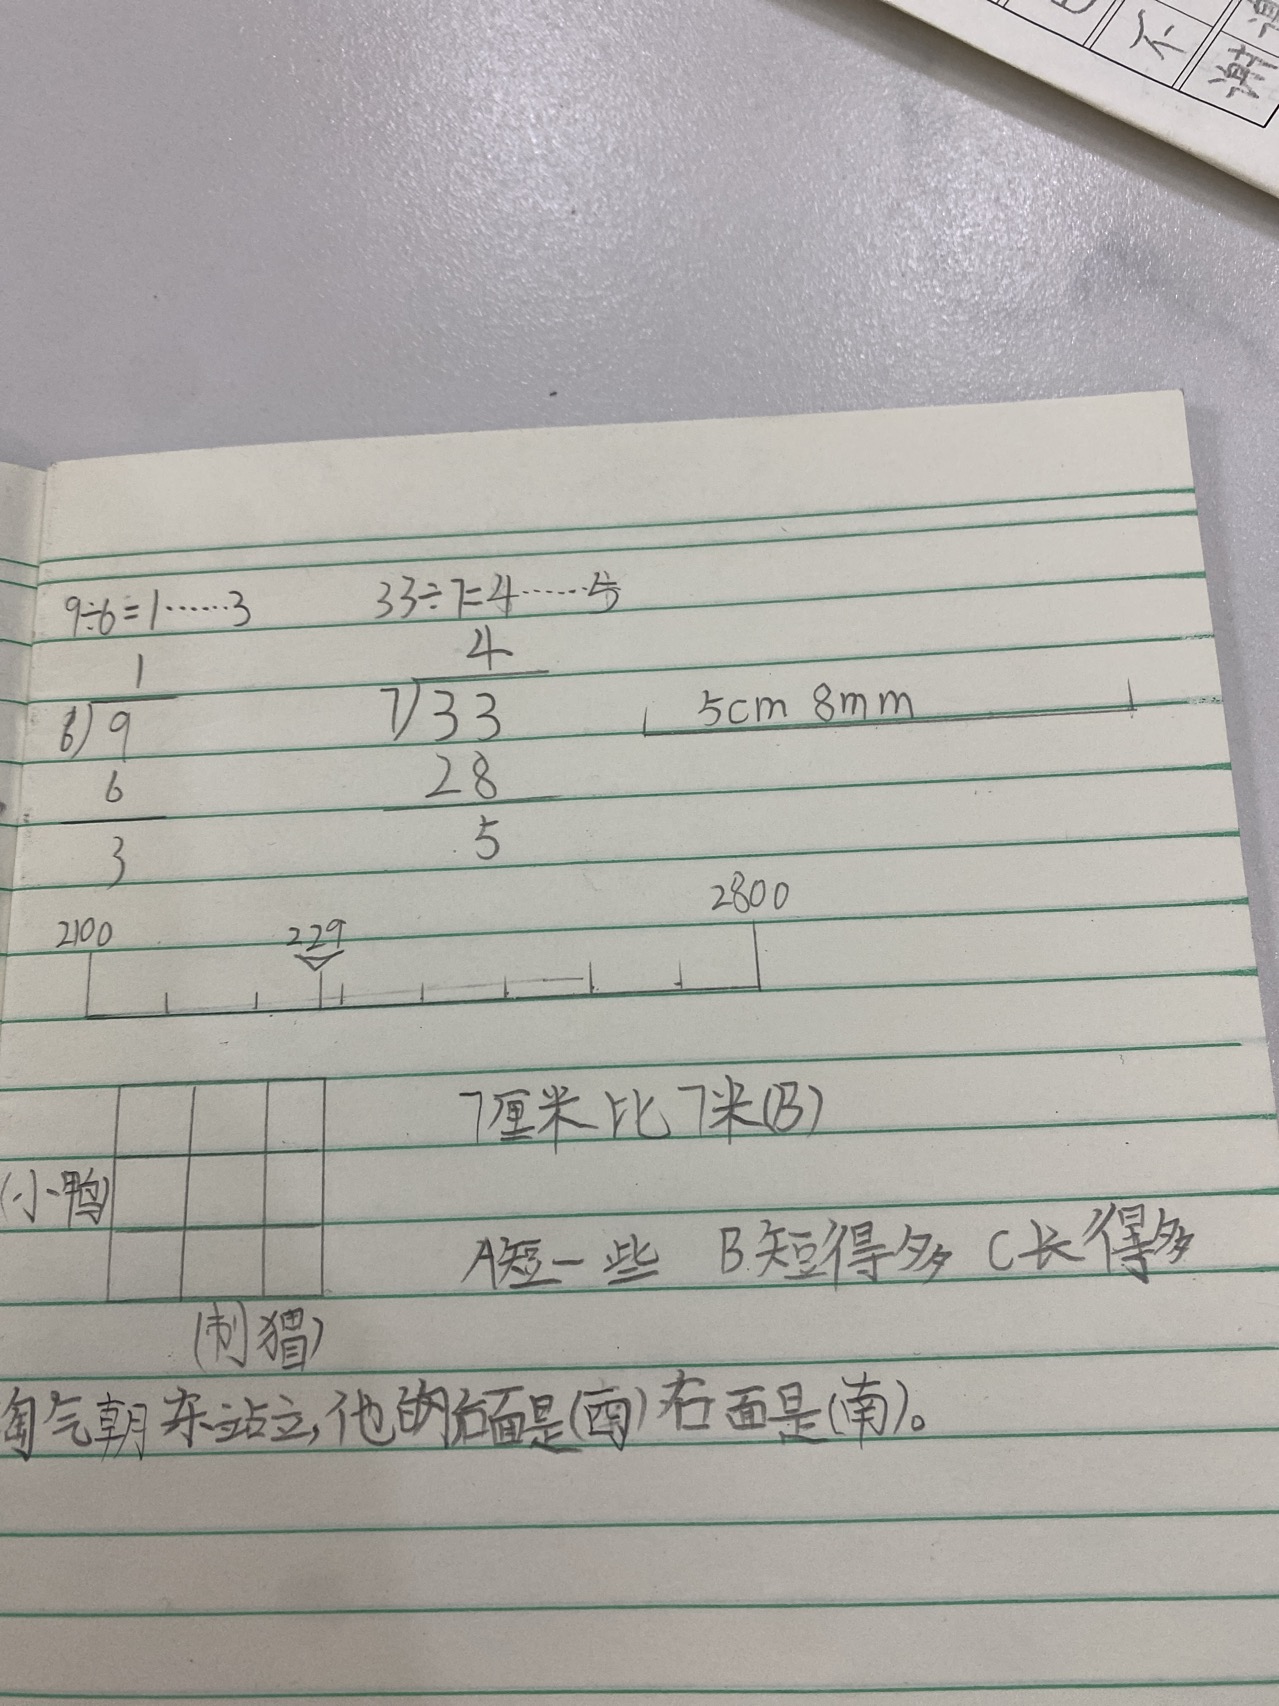 不 谢
9÷6=1……3 33÷7=4……5
1 4
6)9 7)33 5cm 8mm
6 28
3 5
2100 229 2800
7厘米比7米(B)
(小鸭)
A短一些 B短得多 C长得多
(刺猬)
淘气朝东站立,他的后面是(西)右面是(南)。